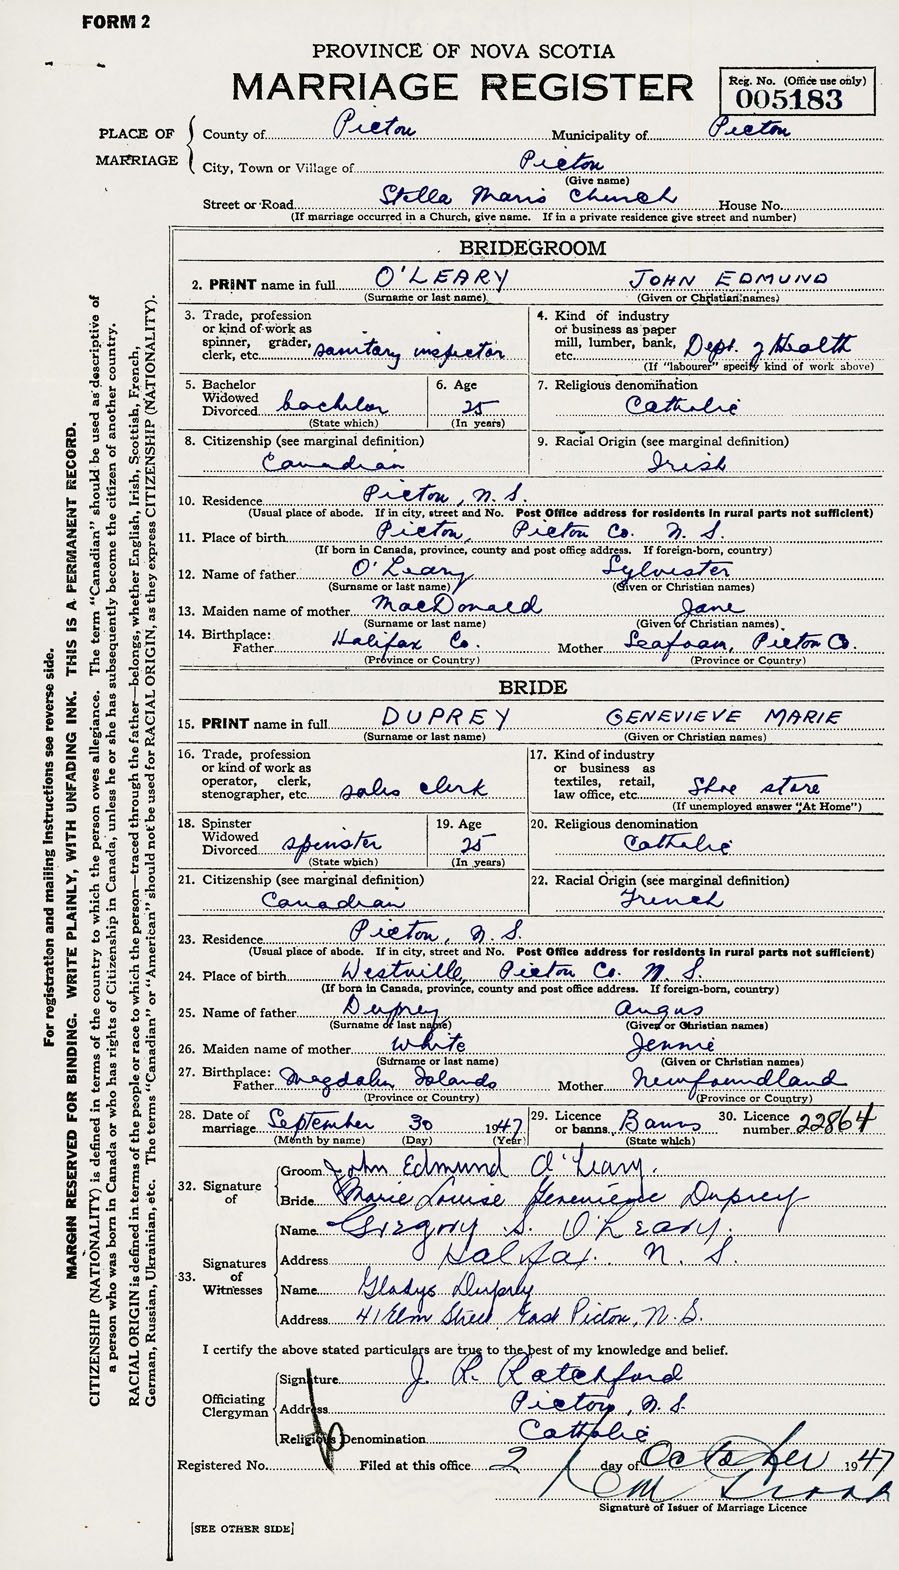 FORM 2
PROVINCE OF NOVA SCOTIA
MARRIAGE REGISTER
Reg. No. (Office use only)
005183
PLACE OF MARRIAGE
County of Pictou Municipality of Pictou
City, Town or Village of Pictou
(Give name)
Street or Road Stella Maris Church House No.
(If marriage occurred in a Church, give name. If in a private residence give street and number)
BRIDEGROOM
2. PRINT name in full O'LEARY JOHN EDMUND
(Surname or last name) (Given or Christian names)
3. Trade, profession
or kind of work as
spinner, grader,
clerk, etc. sanitary inspector
4. Kind of industry
or business as paper
mill, lumber, bank,
etc. Dept. of Health
(If "labourer" specify kind of work above)
5. Bachelor
Widowed
Divorced bachelor
(State which)
6. Age
25
(In years)
7. Religious denomination
Catholic
8. Citizenship (see marginal definition)
Canadian
9. Racial Origin (see marginal definition)
Irish
10. Residence Pictou, N.S.
(Usual place of abode. If in city, street and No. Post Office address for residents in rural parts not sufficient)
11. Place of birth Pictou, Pictou Co. N.S.
(If born in Canada, province, county and post office address. If foreign-born, country)
12. Name of father O'Leary Sylvester
(Surname or last name) (Given or Christian names)
13. Maiden name of mother MacDonald Jane
(Surname or last name) (Given or Christian names)
14. Birthplace:
Father Halifax Co. Mother Seafoam, Pictou Co.
(Province or Country) (Province or Country)
BRIDE
15. PRINT name in full DUPREY GENEVIEVE MARIE
(Surname or last name) (Given or Christian names)
16. Trade, profession
or kind of work as
operator, clerk,
stenographer, etc. sales clerk
17. Kind of industry
or business as
textiles, retail,
law office, etc. Shoe store
(If unemployed answer "At Home")
18. Spinster
Widowed
Divorced spinster
(State which)
19. Age
25
(In years)
20. Religious denomination
Catholic
21. Citizenship (see marginal definition)
Canadian
22. Racial Origin (see marginal definition)
French
23. Residence Pictou, N.S.
(Usual place of abode. If in city, street and No. Post Office address for residents in rural parts not sufficient)
24. Place of birth Westville, Pictou Co. N.S.
(If born in Canada, province, county and post office address. If foreign-born, country)
25. Name of father Duprey Angus
(Surname or last name) (Given or Christian names)
26. Maiden name of mother White Jennie
(Surname or last name) (Given or Christian names)
27. Birthplace:
Father Magdalen Islands Mother Newfoundland
(Province or Country) (Province or Country)
28. Date of
marriage September 30 1947
(Month by name) (Day) (Year)
29. Licence
or banns Banns
(State which)
30. Licence
number 22864
32. Signature of
Groom John Edmund O'Leary.
Bride Marie Louise Genevieve Duprey
33. Signatures of Witnesses
Name Gregory S. O'Leary.
Address Halifax. N.S.
Name Gladys Duprey
Address 41 Elm Street East Pictou, N.S.
I certify the above stated particulars are true to the best of my knowledge and belief.
Officiating Clergyman
Signature J. R. Ratchford
Address Pictou, N.S.
Religious Denomination Catholic
Registered No. Filed at this office 2 day of October 1947
Signature of Issuer of Marriage Licence
[SEE OTHER SIDE]
For registration and mailing instructions see reverse side.
MARGIN RESERVED FOR BINDING. WRITE PLAINLY, WITH UNFADING INK. THIS IS A PERMANENT RECORD.
CITIZENSHIP (NATIONALITY) is defined in terms of the country to which the person owes allegiance. The term "Canadian" should be used as descriptive of
a person who was born in Canada or who has rights of Citizenship in Canada, unless he or she has subsequently become the citizen of another country.
RACIAL ORIGIN is defined in terms of the people or race to which the person—traced through the father—belongs, whether English, Irish, Scottish, French,
German, Russian, Ukrainian, etc. The terms "Canadian" or "American" should not be used for RACIAL ORIGIN, as they express CITIZENSHIP (NATIONALITY).